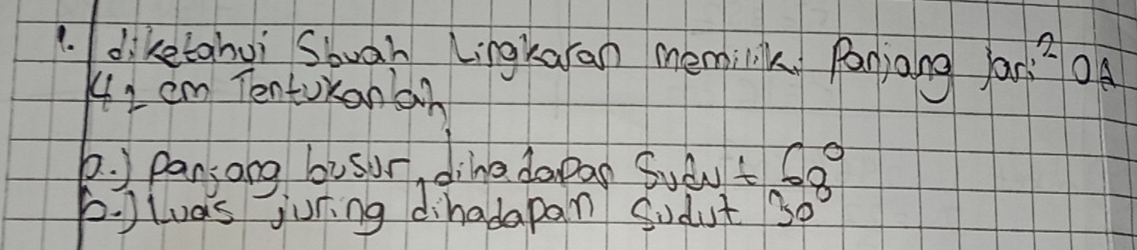 1. diketahui Sbuah Lingkaran memiliki Panjang jari² OA
42 cm Tentukanlah
a.) panjang busur dihadapan Sudut 60°
b.) Luas juring dihadapan Sudut 30°